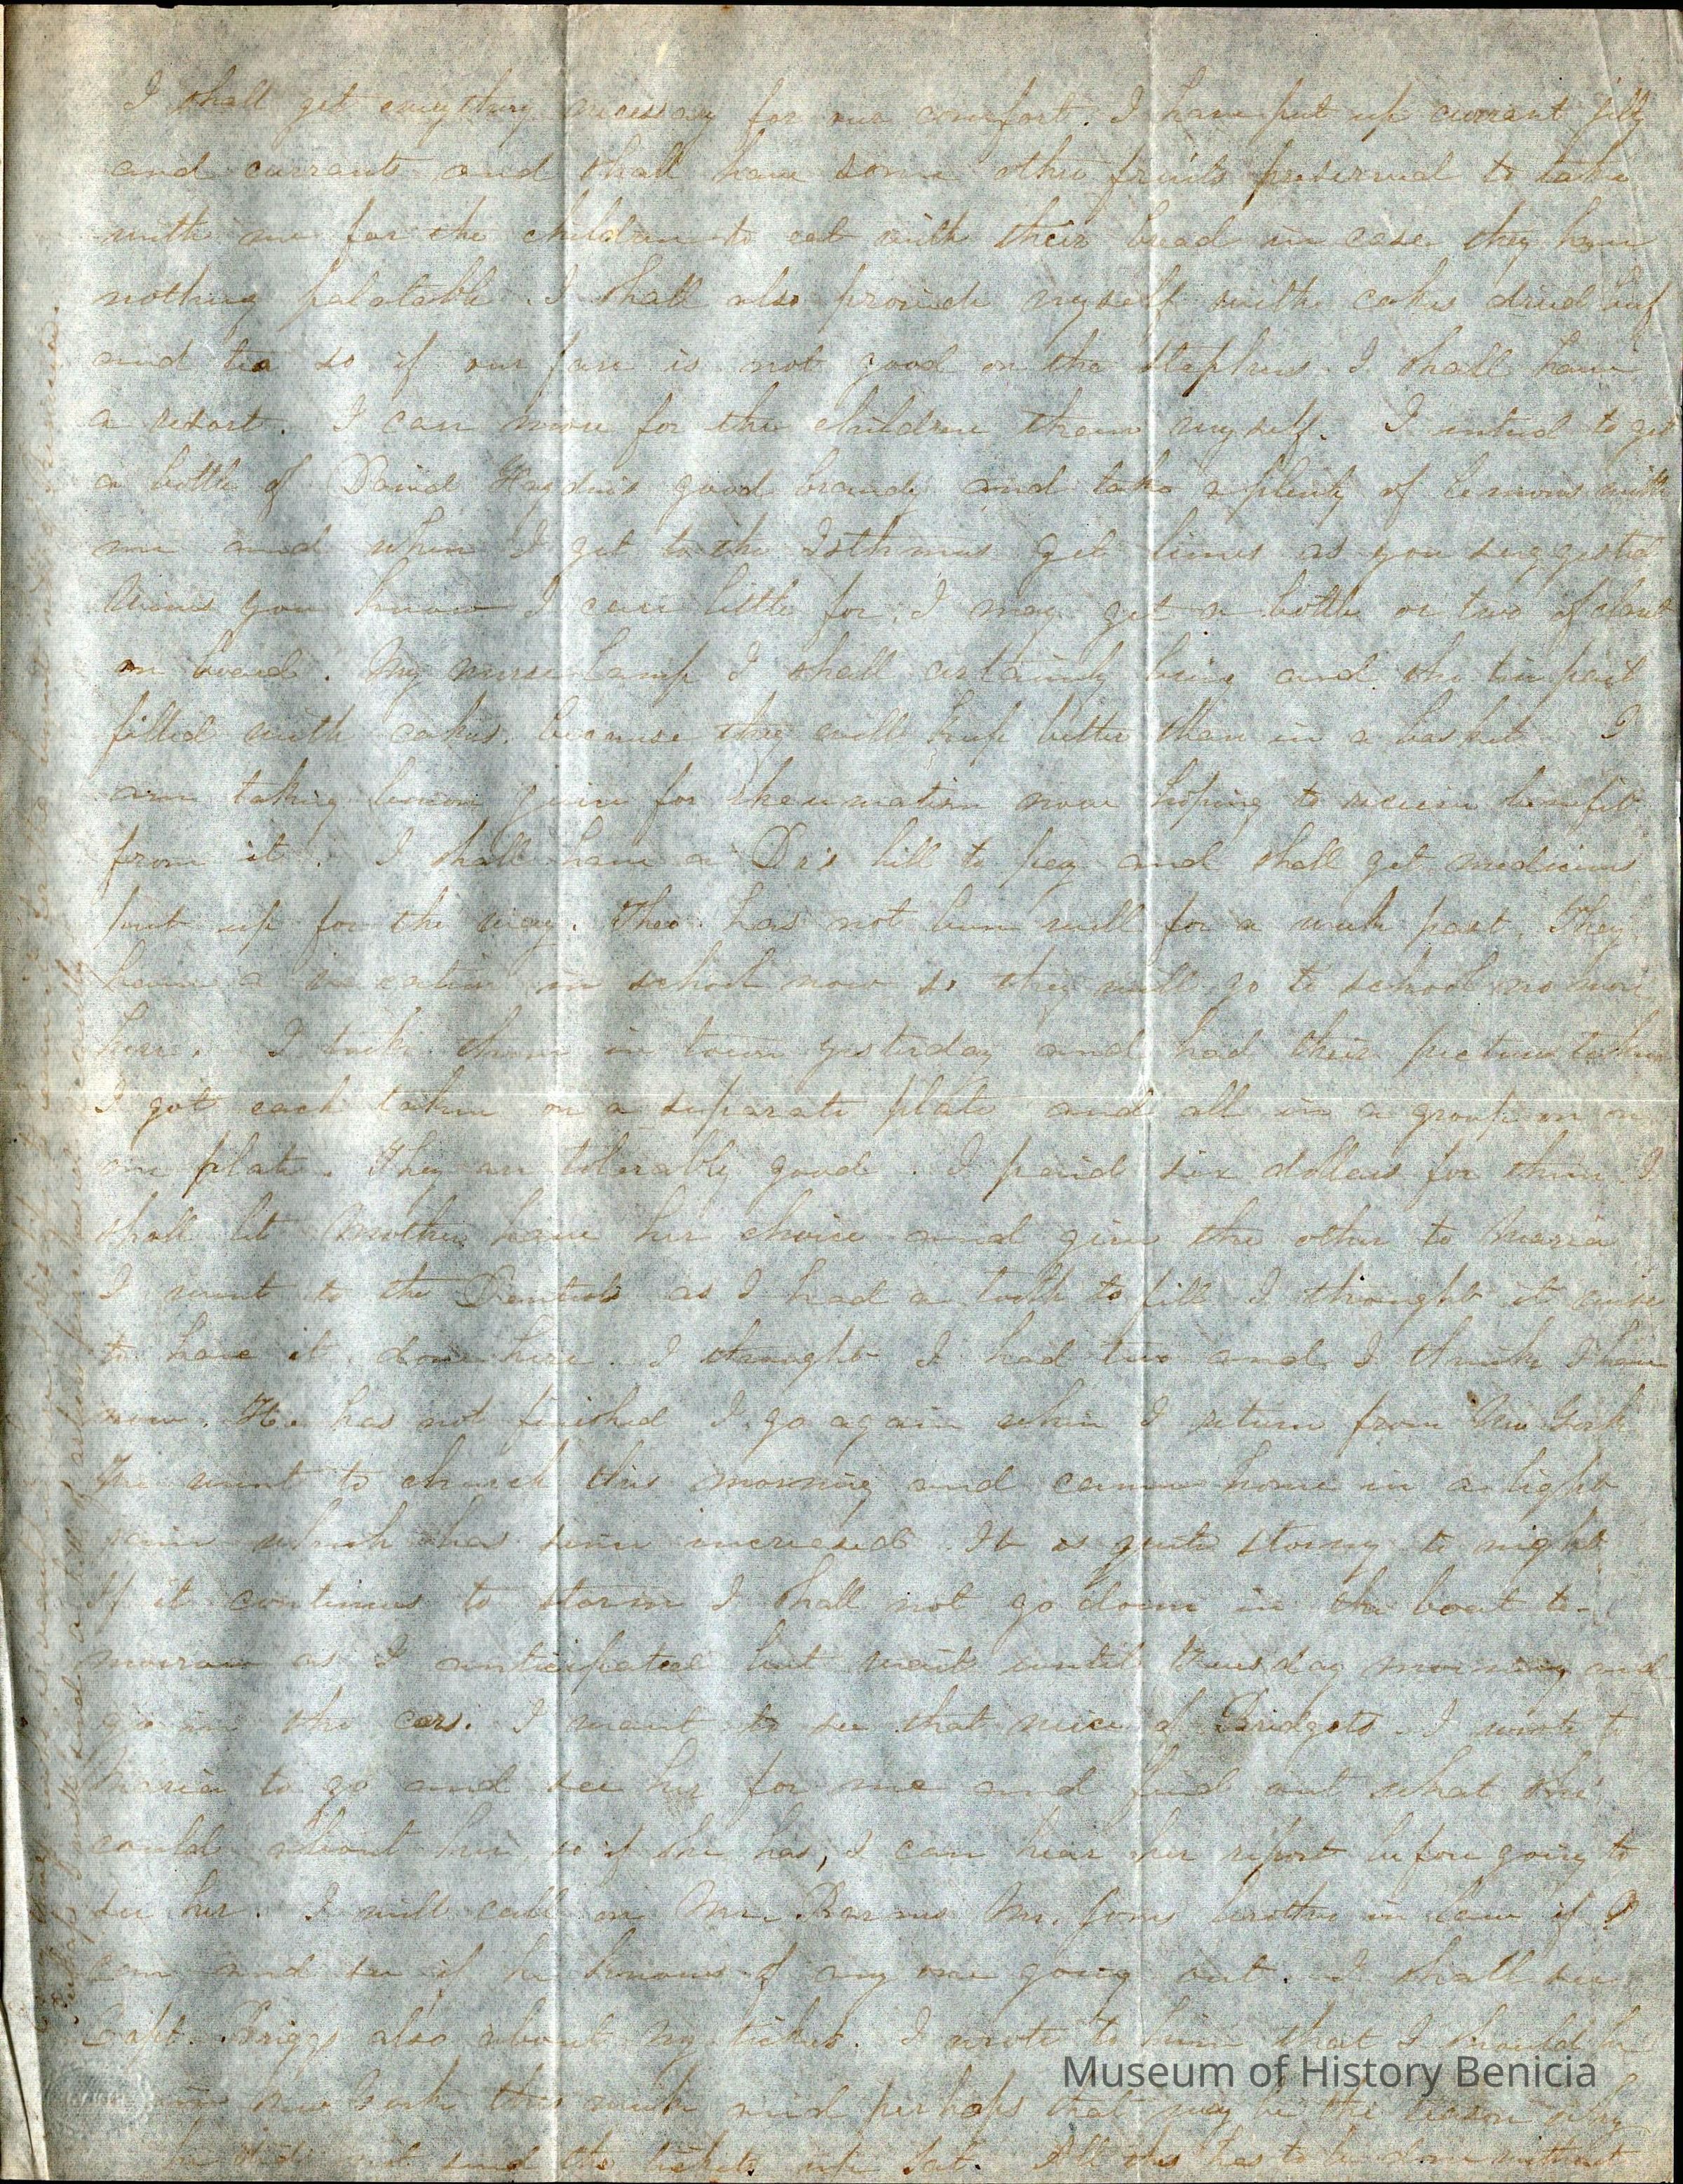 I shall get everything necessary for our comfort. I have put up currant jelly
and currants and shall have some other fruits preserved to take
with me for the children to eat with their bread in case they have
nothing palatable. I shall also provide myself with cakes dried beef
and tea so if our fare is not good on the Stephens I shall have
a resort. I care more for the children than myself. I intend to get
a bottle of David Hayden's good brandy and take a plenty of lemons with
me and when I get to the Isthmus get limes as you suggested
Wines you know I care little for, I may get a bottle or two of claret
on board. My nurse lamp I shall certainly bring and the tin pail
filled with cakes because they will keep better than in a basket. I
am taking lemon juice for rheumatism now hoping to receive benefit
from it. I shall have a Dr's bill to pay and shall get medicines
put up for the way. Theo has not been well for a week past. They
have a vacation in school now so they will go to school no more
here. I took them in town yesterday and had their pictures taken
I got each taken on a separate plate and all in a group on
one plate. They are tolerably good. I paid six dollars for them I
shall let Mother have her choice and give the other to Maria
I went to the Dentists as I had a tooth to fill I thought it wise
to have it done here. I thought I had two and I think I have
now. He has not finished I go again when I return from New York
We went to church this morning and came home in a light
rain which has since increased. It is quite stormy to night
If it continues to storm I shall not go down in the boat to-
morrow as I anticipated but wait until Tuesday morning and
go in the cars. I want to see that niece of Bridgets. I wrote to
Maria to go and see her for me and find out what she
could about her, so if she has, I can hear her report before going to
see her. I will call on Mr. Barnes Mr. Jones brother in law if I
can and see if he knows of any one going out. I shall see
Capt. Briggs also about my ticket. I wrote to him that I should be
in New York this week and perhaps that may be the reason why
he did not send the tickets up Sat. All this has to be done without
Museum of History Benicia